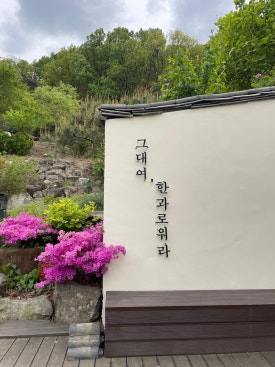 그대여,
한과로위라